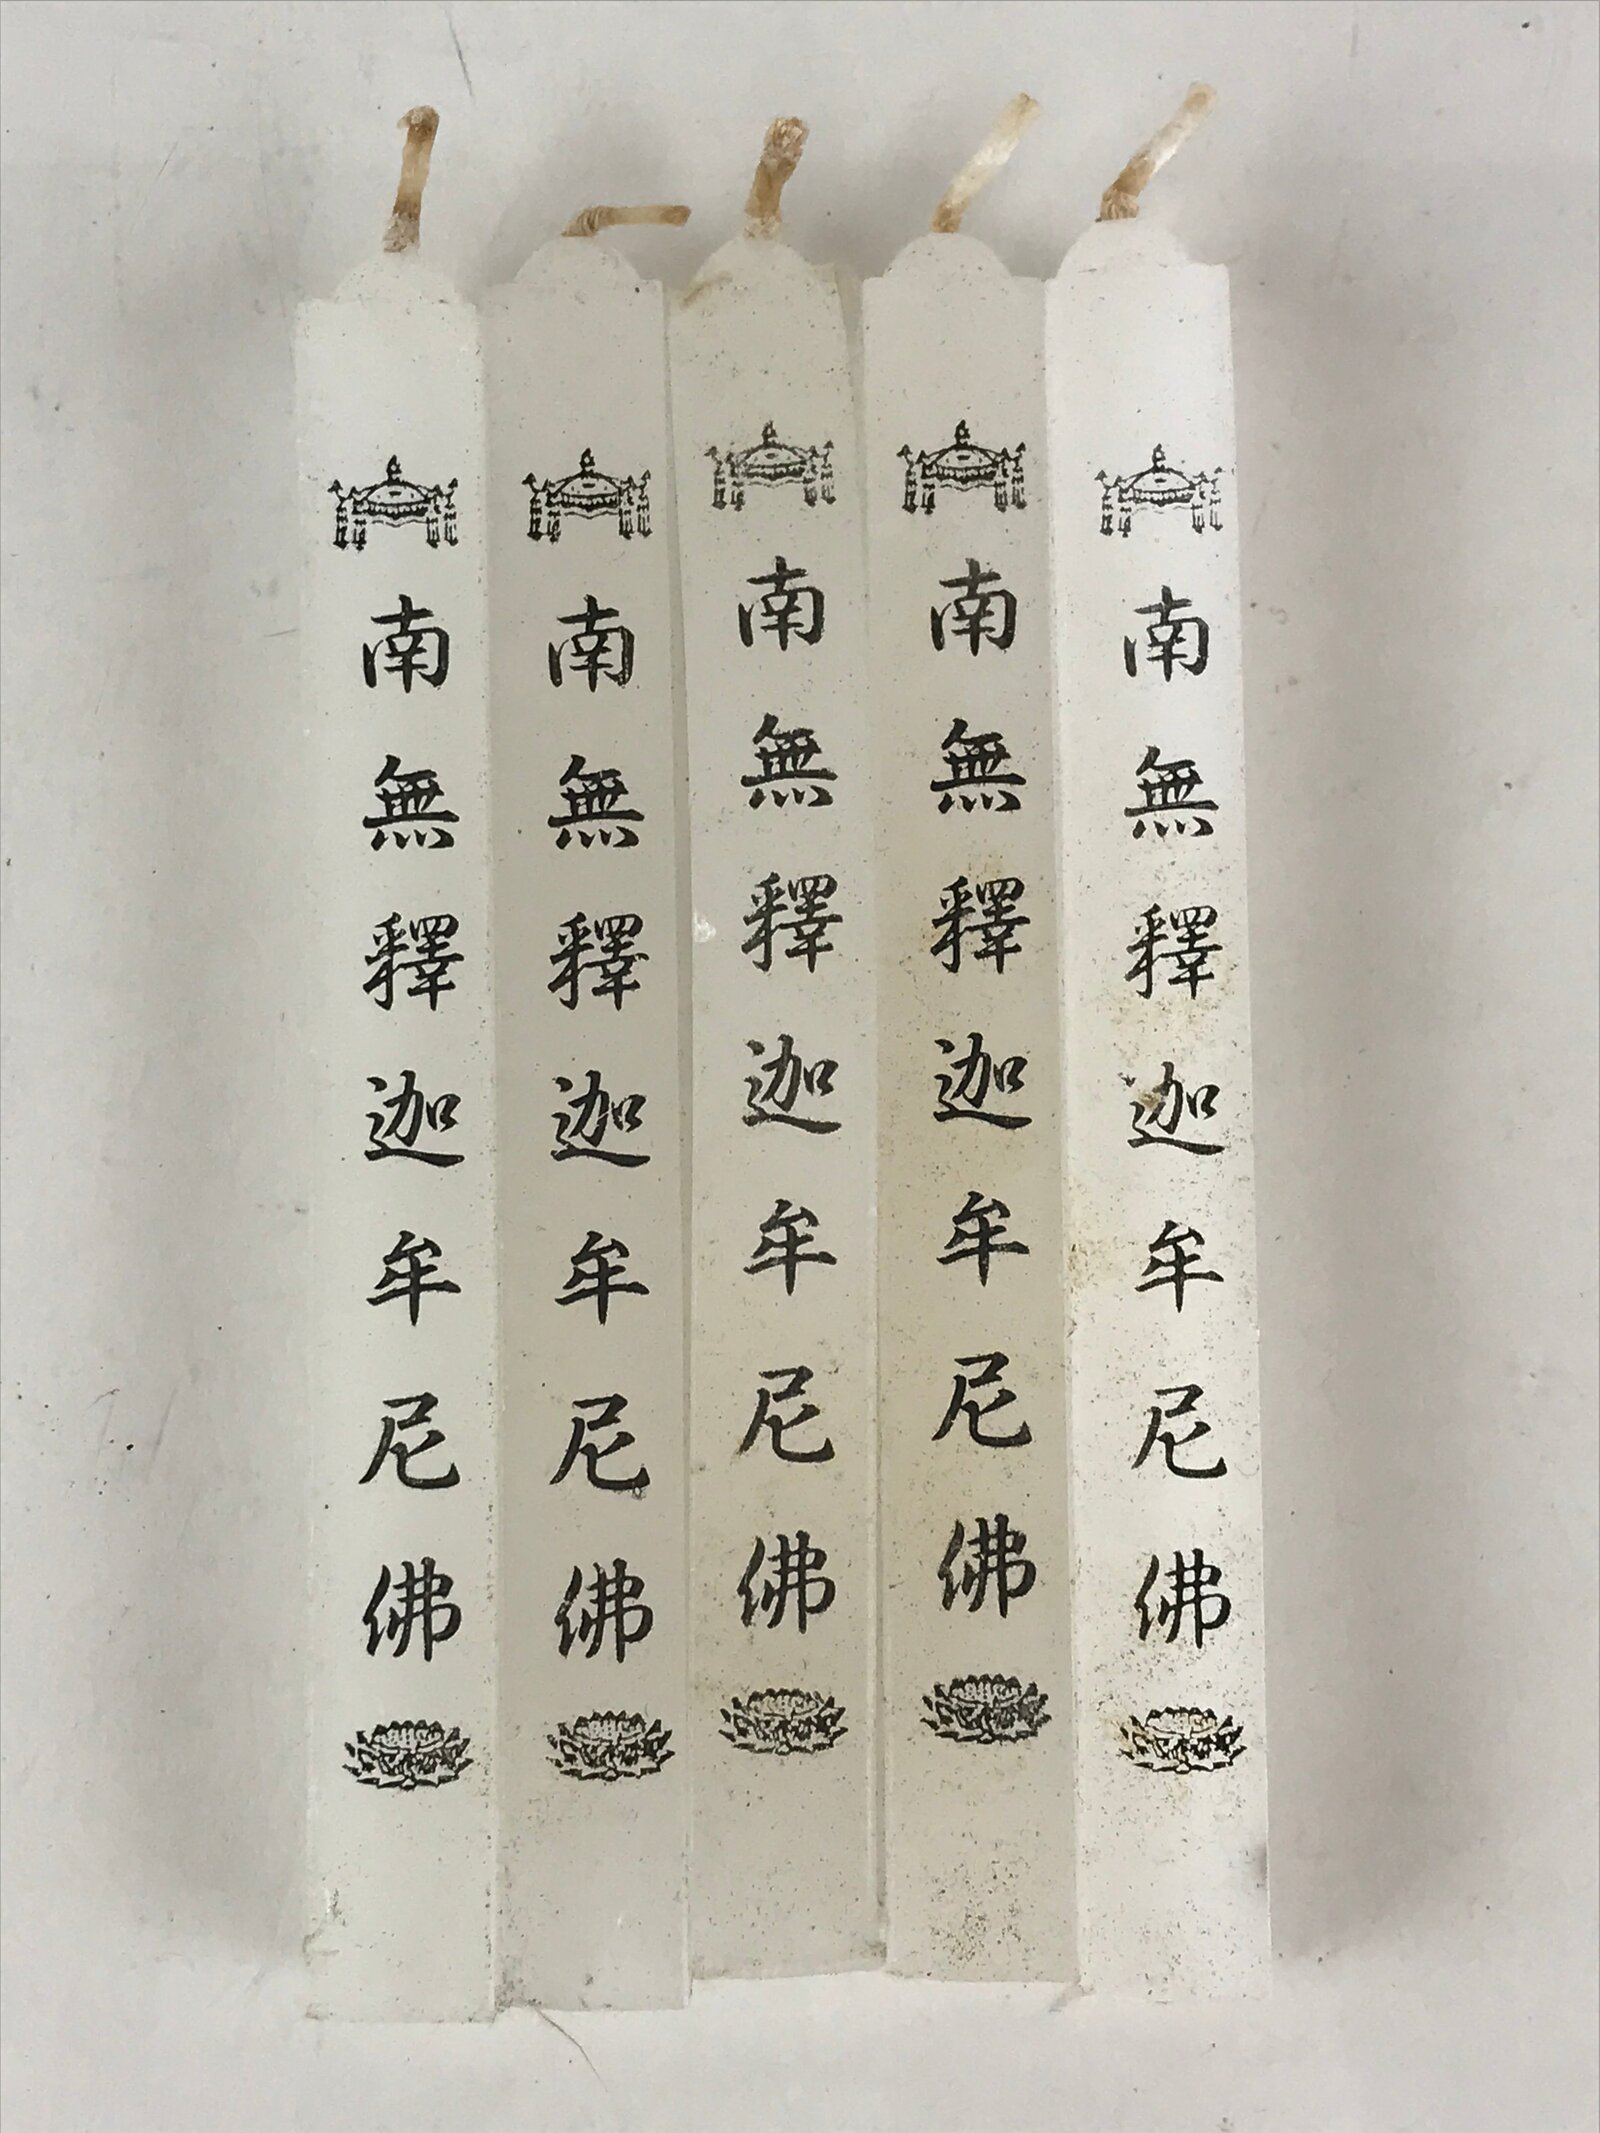 南無釋迦牟尼佛
南無釋迦牟尼佛
南無釋迦牟尼佛
南無釋迦牟尼佛
南無釋迦牟尼佛